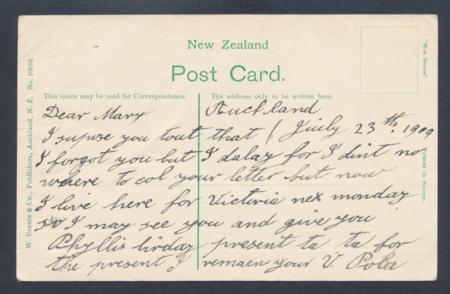 New Zealand
Post Card.
This space may be used for Correspondence.
The address only to be written here.
"Mua Series"
W. Beattie & Co., Publishers, Auckland, N. Z. No. 10016
Printed in Saxony.
Auckland
Dear Mary July 23th. 1909
I supose you tout that I
I forgot you but I dalay for I dint no
where to col your letter but now
I live here for Victoria nex monday
so I may see you and give you
Phyllis birday present ta ta for
the present I remaen your V. Pola